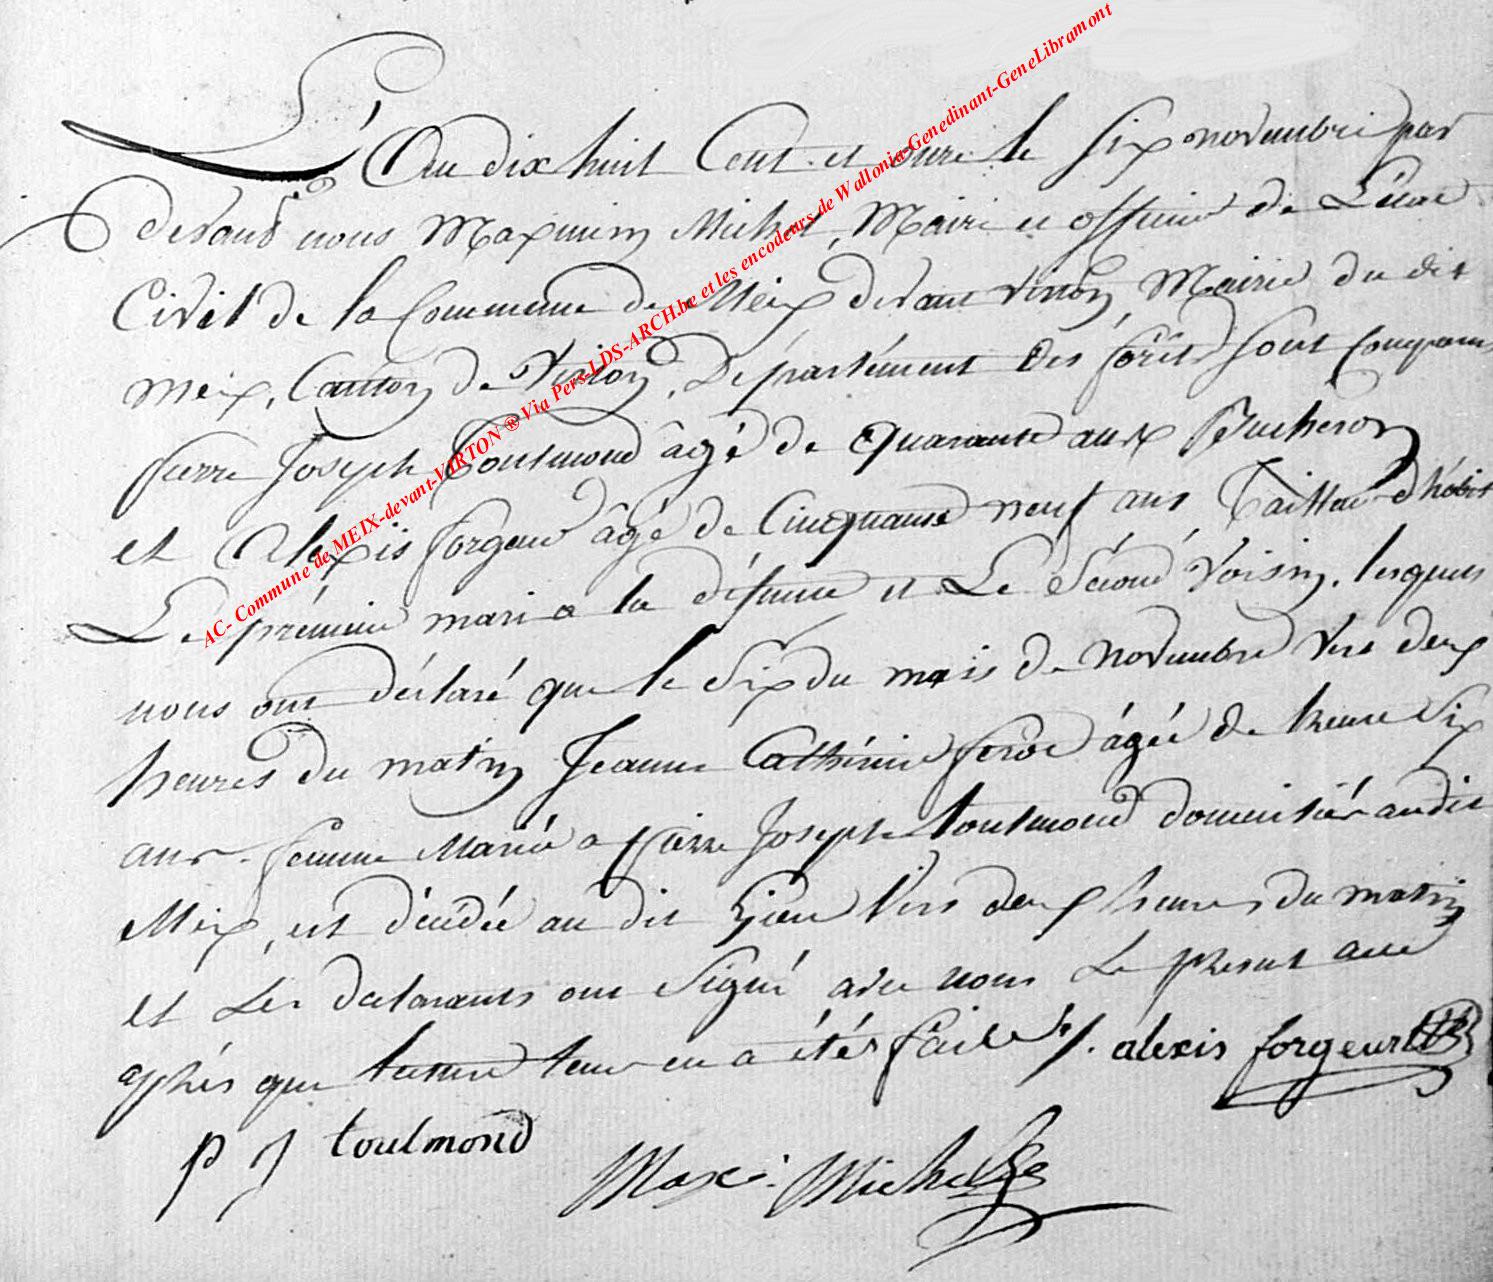 L'An dix huit Cent et onze le six novembre par
devant nous Maximin Michel, Maire et officier de L'état
Civil de la Commune de Meix devant Virton, Mairie du dit
Meix, Canton de Virton, Département des forêts sont comparus
pierre Joseph Toulmond âgé de quarante ans Bucheron
et Alexis forgeur âgé de Cinquante neuf ans Tailleur d'habit
Le prémier mari a la défunte et Le Second Voisin, lesquels
nous ont déclaré que le Six du mois de novembre vers deux
heures du matin Jeanne Cathérine âgée de trente Six
ans femme Marié a pierre Joseph toulmond domiciliés audit
Meix, est décédée au dit Lieu vers deux heures du matin
et Les déclarants ont Signé avec nous Le present acte
aphés que lecture leur en a étés faite /. alexis forgeur
p J toulmond
Maxi. Michel
AC- Commune de MEIX-devant-VIRTON ® Via Pers-LDS-ARCH.be et les encodeurs de Wallonia-Genedinant-GeneLibramont